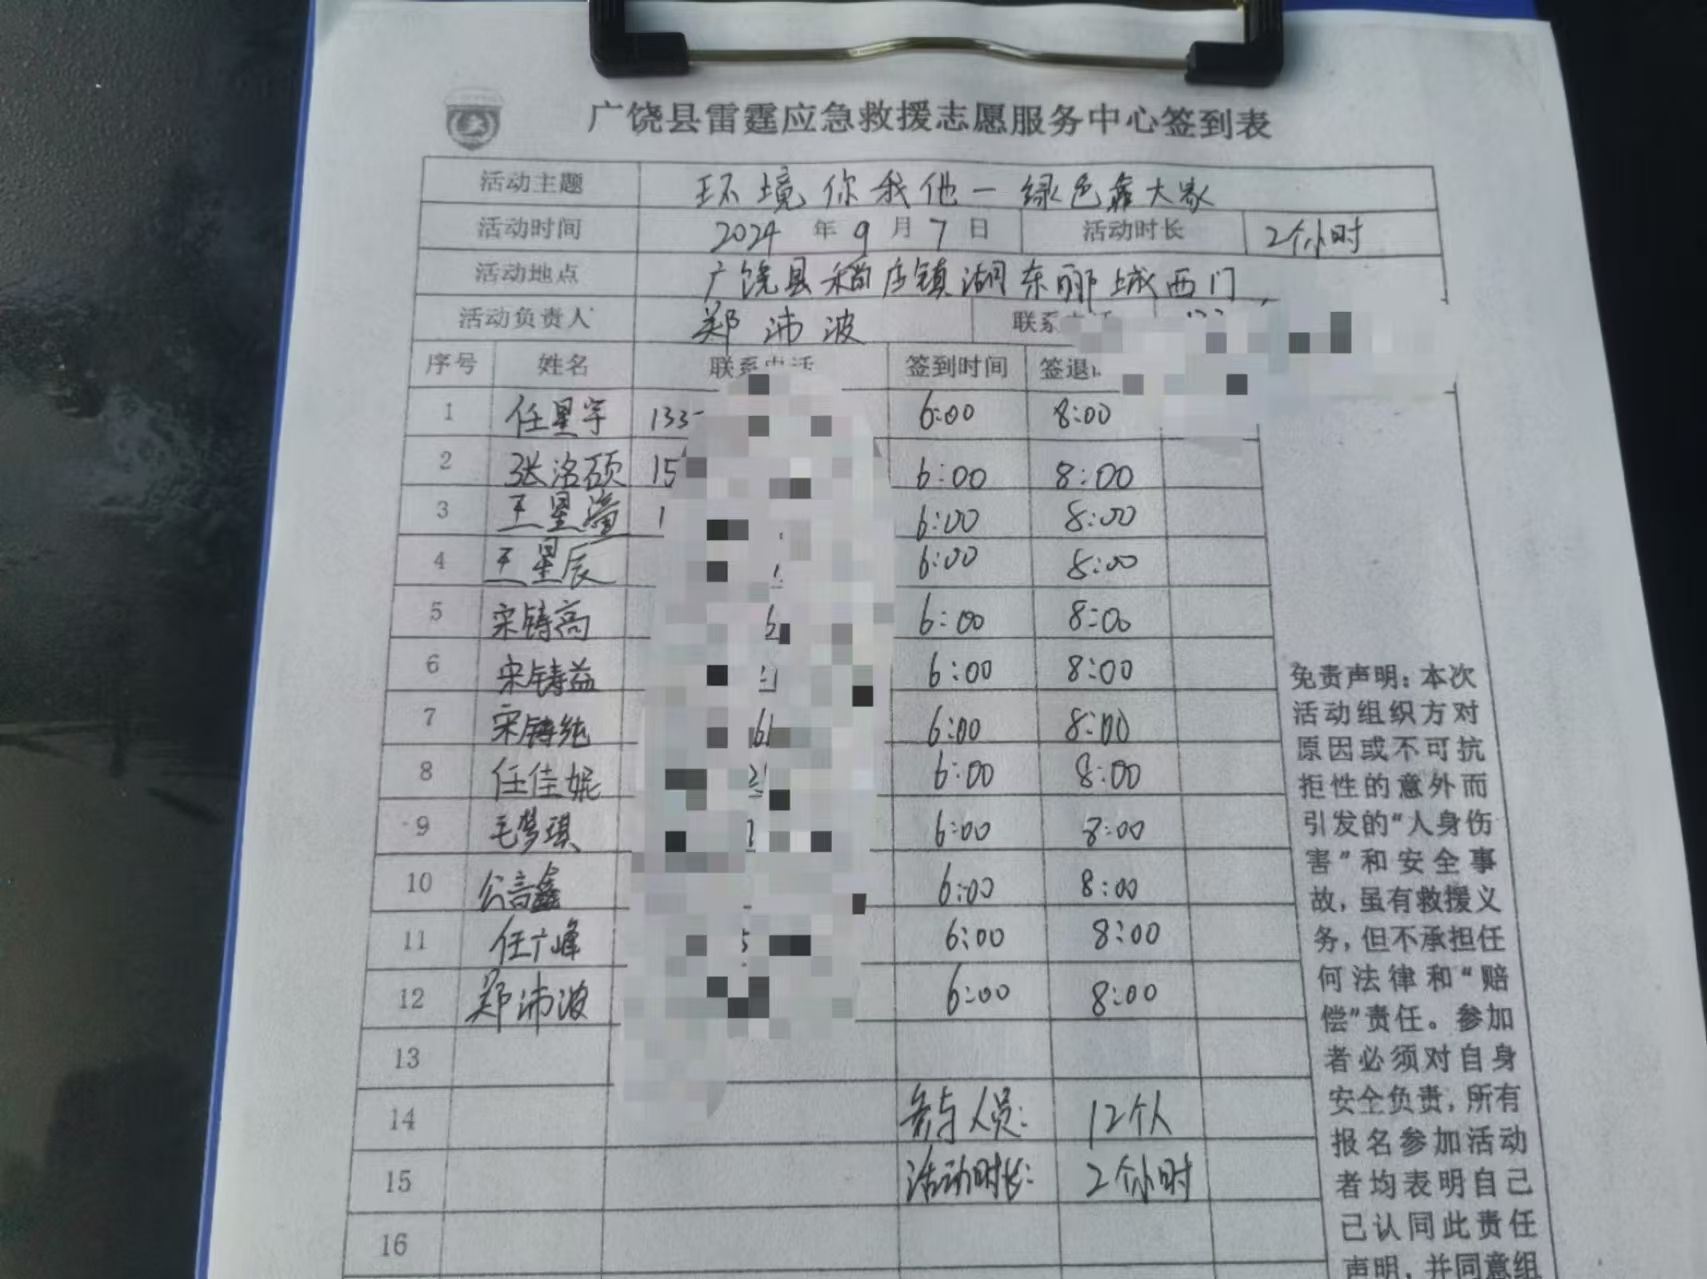 广饶县雷霆应急救援志愿服务中心签到表
活动主题 环境你我他一绿色靠大家
活动时间 2024 年 9 月 7 日 活动时长 2个小时
活动地点 广饶县稻庄镇湖东郦城西门
活动负责人 郑沛波 联系
序号 姓名 联系电话 签到时间 签退
1 任星宇 133 6:00 8:00
2 张洺硕 15 6:00 8:00
3 王星 1 6:00 8:00
4 王星辰 6:00 8:00
5 宋铸高 6:00 8:00
6 宋铸益 6:00 8:00
7 宋铸纯 6:00 8:00
8 任佳妮 6:00 8:00
9 毛梦琪 6:00 8:00
10 公言鑫 6:00 8:00
11 任广峰 5 6:00 8:00
12 郑沛波 6:00 8:00
13
14 参与人员: 12个人
15 活动时长: 2个小时
16
免责声明：本次
活动组织方对
原因或不可抗
拒性的意外而
引发的“人身伤
害”和安全事
故，虽有救援义
务，但不承担任
何法律和“赔
偿”责任。参加
者必须对自身
安全负责，所有
报名参加活动
者均表明自己
已认同此责任
声明，并同意组